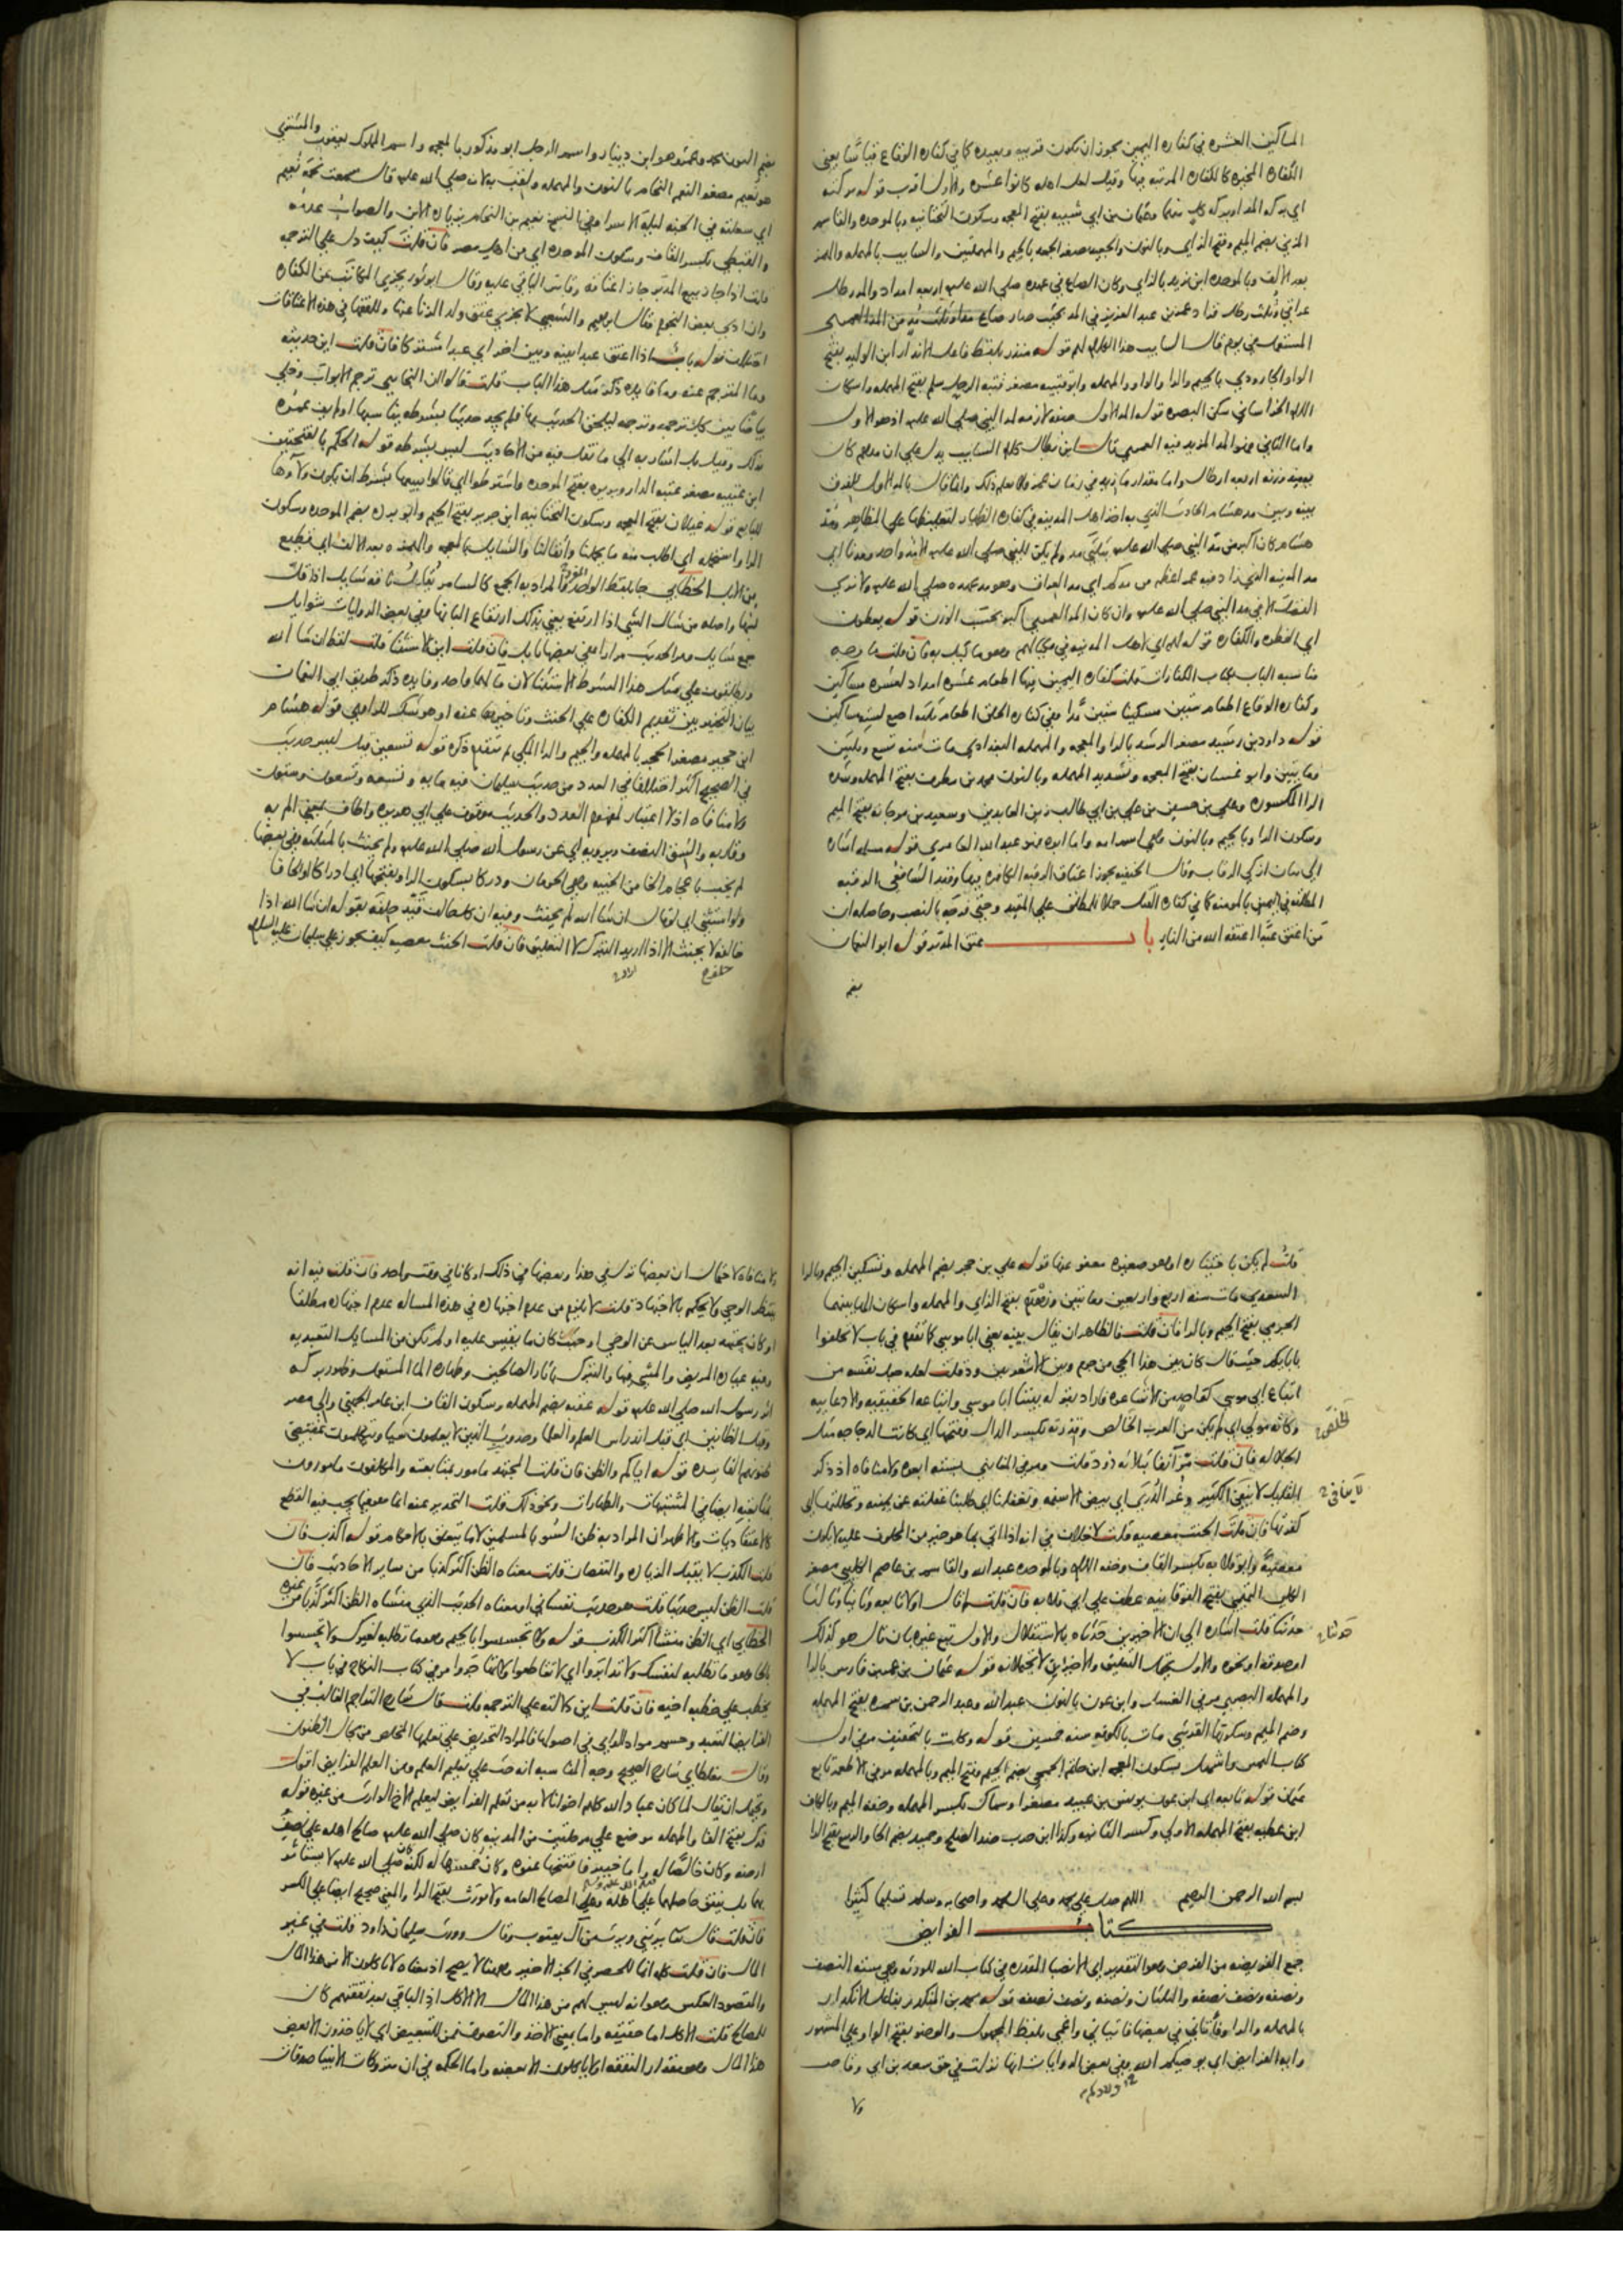 المساكين العشره في كفاره اليمين يجوز ان يكون قريبه وبعيده كما في كفاره الوقاع قياسا يعني
الكفاره المخيره كالكفاره المرتبه فيها وقيل لعل اهله كانوا عشره والاول اقرب قوله بركته
اي بركه المد او بركه كل منهما وعثمان بن ابي شيبه بفتح المعجمه وسكون التحتانيه وبالموحده والقاسم
المزني بضم الميم وفتح الزاي وبالنون والجعيد مصغر الجعد بالجيم والمهملتين والسايب بالمهمله والهمز
بعد الالف وبالموحده ابن يزيد بالزاي وكان الصاع في عهده صلى الله عليه اربعه امداد والمد رطل
عراقي وثلث رطل فزاد عمر بن عبد العزيز في المد بحيث صار صاع مدا وثلث مد من المد العمري
المستعمل في يوم قال السايب هذا الكلام لهم قوله منذر بلفظ فاعل الانذار ابن الوليد بفتح
الواو الجارودي بالجيم والرا والواو والمهمله وابو قتيبه مصغر قتبه الرحل سلم بفتح المهمله واسكان
اللام الخراساني سكن البصره قوله المد الاول صفه لازمه لمد النبي صلى الله عليه اذ هو الاول
واما الثاني فهو المد المزيد فيه العمري قال ابن بطال كلام السايب يدل على ان مدهم كان
بينه وبين مد هشام الحادث الذي به اخذ اهل المدينه في كفاره الظهار لتغليظها على المظاهر ومد
الفضل الا في مد النبي صلى الله عليه وان كان المد العمري اكبر بحسب الوزن قوله يعطون
اي الفطره والكفاره
مناسبه الباب لكتاب الكفارات قلت كفاره اليمين فيها اطعام عشره امداد لعشره مساكين
وكفاره الوقاع اطعام ستين مسكينا ستين مدا وفي كفاره الحلق اطعام ثلثه اصع لسته مساكين
قوله داود بن رشيد مصغر الرشد بالرا والمعجمه والمهمله البغدادي مات سنه تسع وثلثين
ومايتين وابو غسان بفتح المعجمه وتشديد المهمله وبالنون محمد بن مطرف بفتح المهمله وشده
الرا المكسوره وعلي بن حسين بن علي بن ابي طالب زين العابدين وسعيد بن مرجانه بفتح الميم
وسكون الرا وبالجيم وبالنون وهي اسم امه واما ابوه فهو عبد الله العامري قوله مسلمه اشاره
الى بيان ازكى الرقاب وقال الحنفيه يجوز اعتاق الرقبه الكافره فيها وقيد الشافعي الرقبه
المطلقه في اليمين بالمومنه كما في كفاره القتل حملا للمطلق على المقيد وحتى فرجه بالنصب وحاصله ان
من اعتق عبدا اعتقه الله من النار باب عتق المدبر قوله ابو النعمان
بضم
بضم النون محمد وعمرو هو ابن دينار واسم الرجل ابو مذكور بالمعجمه واسم المملوك يعقوب والمشتري
هو نعيم مصغر النعم النحام بالنون والمهمله ولقب به لانه صلى الله عليه قال سمعت نحمه نعيم
اي سعلته في الجنه ليله الاسرا وفي النسخ نعيم بن النحام بزياده الابن والصواب عدمه
والقبطي بكسر القاف وسكون الموحده اي من اهل مصر فان قلت كيف دل على الترجمه
قلت اذا جاز بيع المدبر جاز اعتاقه وقاس الباقي عليه وقال ابو ثور يجزي المكاتب عن الكفاره
وان ادى بعض النجوم قال ابراهيم والشعبي لا يجزي عتق ولد الزنا عنها وللفقها في هذه الاعتاقات
اختلاف قوله باب اذا اعتق عبدا بينه وبين اخر اي عبدا مشتركا فان قلت اين حديثه
وما المترجم عنه وما فايده ذكر مثل هذا الباب قلت قالوا ان البخاري ترجم الابواب وخلى
بياضا بين كل ترجمه وترجمه ليلحق الحديث بها فلم يجد حديثا بشرطه يناسبها او لم يف عمره
بذلك وقيل بل اشار به الى ما نقل فيه من الاحاديث ليس بشرطه قوله الحكم بالفتحتين
ابن عتيبه مصغر عتبه الدار وبريره بفتح الموحده واشترطوا اي قالوا نبيعها بشرط ان يكون ولاوها
للبايع قوله غيلان بفتح المعجمه وسكون التحتانيه ابن جرير بفتح الجيم وابو برده بضم الموحده وسكون
الرا واستحمله اي اطلب منه ما يحملنا واثقالنا والشايل بالمعجمه والهمزه بعد الالف اي قطيع
من الابل الخطابي جا بلفظ الواحد والمراد به الجمع كالسامر يقال ناقه شايل اذا قل
لبنها واصله من شال الشي اذا ارتفع يعني بذلك ارتفاع البانها وفي بعض الروايات شوايل
جمع شايل ومر الحديث مرارا فان قلت اين الاستثنا قلت لفظ ان شا الله
بيان التخيير بين تقديم الكفاره على الحنث وتاخيرها عنه او هو شك للراوي قوله هشام
ابن حجير مصغر الحجر بالمهمله والجيم والرا المكي لم يتقدم ذكره قوله تسعين قيل ليس حديث
في الصحيح اكثر اختلافا في العدد من حديث سليمان فيه مايه وتسعه وتسعون وستون
ولا منافاه اذ لا اعتبار لمفهوم العدد والحديث موقوف على ابي هريره واطاف بمعنى الم به
وقاربه والشق النصف ويرويه اي عن رسول الله صلى الله عليه ولم يحنث بالمثلثه وفي بعضها
لم يخب باعجام الخا من الخيبه وهي الحرمان ودركا بسكون الرا وبفتحها اي ادراكا او لحاقا
ولو استثنى اي لو قال ان شا الله لم يحنث
خالفه لا يحنث الا اذا اريد التبرك لا التعليق فان قلت الحنث معصيه كيف يجوز على سليمان عليه السلم
قلت لم يكن باختياره او هو صغيره معفو عنها قوله علي بن حجر بضم المهمله وتسكين الجيم وبالرا
السعدي مات سنه اربع واربعين ومايتين وزهدم بفتح الزاي والمهمله واسكان الها بينهما
الجرمي بفتح الجيم وبالرا فان قلت الظاهر ان يقال بينه يعني ابا موسى كما تقدم في باب لا تحلفوا
بابايكم حيث قال كان بين هذا الحي من جرم وبين الاشعريين ود قلت لعله جعل نفسه من
اتباع ابي موسى كواحد من الاشاعره فاراد بقوله بيننا ابا موسى واتباعه الحقيقيه والادعاييه
وكانه مولى اي لم يكن من العرب الخالص وقذرته بكسر الذال وفتحها اي كانت الدجاجه مثل
الجلاله فان قلت مر آنفا بثلاثه ذود قلت ومر في المغازي بسته ابعره ولا منافاه اذ ذكر
القليل لا ينفي الكثير وغر الذرى اي بيض الاسنمه وتغفلنا اي طلبنا غفلته عن يمينه وتحللتها اي
كفرتها فان قلت الحنث معصيه قلت لا خلاف في انه اذا اتى بما هو خير من المحلوف عليه لا يكون
معصيه وابو قلابه بكسر القاف وخفه اللام وبالموحده عبد الله والقاسم بن عاصم الكليبي مصغر
الكلب التميمي بفتح الفوقانيه عطف على ابي قلابه فان قلت لم قال اولا تابعه وثانيا وثالثا
حدثنا قلت اشاره الى ان الاخيرين حدثاه بالاستقلال والاول تبع غيره بان قال هو كذلك
او صدقه او نحوه والاول يحتمل التعليق والاخيران لا يحتملانه قوله عثمان بن عمر بن فارس بالرا
والمهمله البصري مر في الغسل وابن عون بالنون عبد الله وعبد الرحمن بن سمره بفتح المهمله
وضم الميم وسكونها القرشي مات بالكوفه سنه خمسين قوله وكلت بالتخفيف مر في اول
كتاب اليمين واشهل بسكون المعجمه ابن حاتم الجمحي بضم الجيم وفتح الميم وبالمهمله مر في الاطعمه تابع
عثمان قوله تابعه اي ابن عون يونس بن عبيد مصغرا وسماك بكسر المهمله وخفه الميم وبالكاف
ابن عطيه بفتح المهمله الاولى وكسر الثانيه وكذا ابن حرب ضد الصلح وحميد بضم الحا والربيع بفتح الرا
الخلص
لا ينافي
حدثنا
بسم الله الرحمن الرحيم اللهم صل على محمد وعلى ال محمد واصحابه وسلم تسليما كثيرا
كتاب الفرايض
جمع الفريضه من الفرض وهو التقدير اي الانصبا المقدره في كتاب الله للورثه وهي سته النصف
ونصفه ونصف نصفه والثلثان ونصفه ونصف نصفه قوله محمد بن المنكدر بفاعل الانكدار
بالمهمله والرا وفاتاني في بعضها فاتياني واغمي بلفظ المجهول والوضو بفتح الواو على المشهور
وايه الفرايض اي يوصيكم الله وفي بعض الروايات انها نزلت في حق سعد بن ابي وقاص
ولا
ولا منافاه لاحتمال ان بعضها نزل في هذا وبعضها في ذلك او كانا في وقت واحد فان قلت فيه انه
ينتظر الوحي ولا يحكم بالاجتهاد قلت لا يلزم من عدم اجتهاده في هذه المساله عدم اجتهاده مطلقا
او كان يجتهد بعد الياس عن الوحي او حيث كان ما يقيس عليه او لم تكن من المسايل التعبديه
وفيه عياده المريض والمشي فيها والتبرك باثار الصالحين وطهاره الما المستعمل وظهور بركه
اثر رسول الله صلى الله عليه قوله عقبه بضم المهمله وسكون القاف ابن عامر الجهني والي مصر
وقبل الظانين اي قبل اندراس العلم والعلما وحدوث الذين لا يعلمون شيا ويتكلمون بمقتضى
ظنونهم الفاسده قوله اياكم والظن فان قلت المجتهد مامور بمتابعته والمكلفون مامورون
بمتابعته ايضا في المشتبهات والطهارات ونحو ذلك قلت التحذير عنه انما هو فيما يجب فيه القطع
كالاعتقاديات والاظهر ان المراد به ظن السو بالمسلمين لا ما يتعلق بالاحكام قوله اكذب فان
قلت الكذب لا يقبل الزياده والنقصان قلت معناه الظن اكثر كذبا من ساير الاحاديث فان
قلت الظن ليس حديثا قلت هو حديث نفساني او معناه الحديث الذي منشاه الظن اكثر كذبا من غيره
الخطابي اي الظن منشأ اكثر الكذب قوله ولا تجسسوا بالجيم وهو ما تطلبه لغيرك ولا تحسسوا
بالحا وهو ما تطلبه لنفسك ولا تدابروا اي لا تقاطعوا ولا تهاجروا مر في كتاب النكاح في باب لا
يخطب على خطبه اخيه فان قلت اين دلالته على الترجمه قلت قال شارح التراجم الغالب في
الفرايض التعبد وحسم مواد الراي في اصولها فالمراد التحريض على تعلمها المخلص من مجال الظنون
وقال مغلطاي شارح الصحيح وجه المناسبه انه حث على تعليم العلم ومن العلم الفرايض اقول
ويحتمل ان يقال لما كان عباد الله كلهم اخوانا لا بد من تعلم الفرايض ليعلم الاخ الوارث من غيره قوله
فدك بفتح الفا والمهمله موضع على مرحلتين من المدينه كان صلى الله عليه صالح اهله على نصف
ارضه وكان خالصا له واما خيبر فافتتحها عنوه وكان خمسها له لكنه كان صلى الله عليه لا يستاثر
بهما بل ينفق حاصلهما على اهله وعلى المصالح العامه ولا نورث بفتح الرا والمعنى صحيح ايضا على الكسر
فان قلت قال تعالى يرثني ويرث من آل يعقوب وقال وورث سليمان داود قلت في غير
المال فان قلت كلمه انما للحصر في الجزء الاخير وههنا لا يصح اذ معناه لا ياكلون الا من هذا المال
والمقصود العكس وهو انه ليس لهم من هذا المال الا الاكل اذ الباقي بعد نفقتهم كان
للمصالح قلت الاكل اما حقيقه واما بمعنى الاخذ والتصرف فمن للتبعيض اي لا ياخذون الا بعض
هذا المال وهو مقدار النفقه او لا ياكلون الا بعضه واما الحكمه في ان متروكات الانبيا صدقات